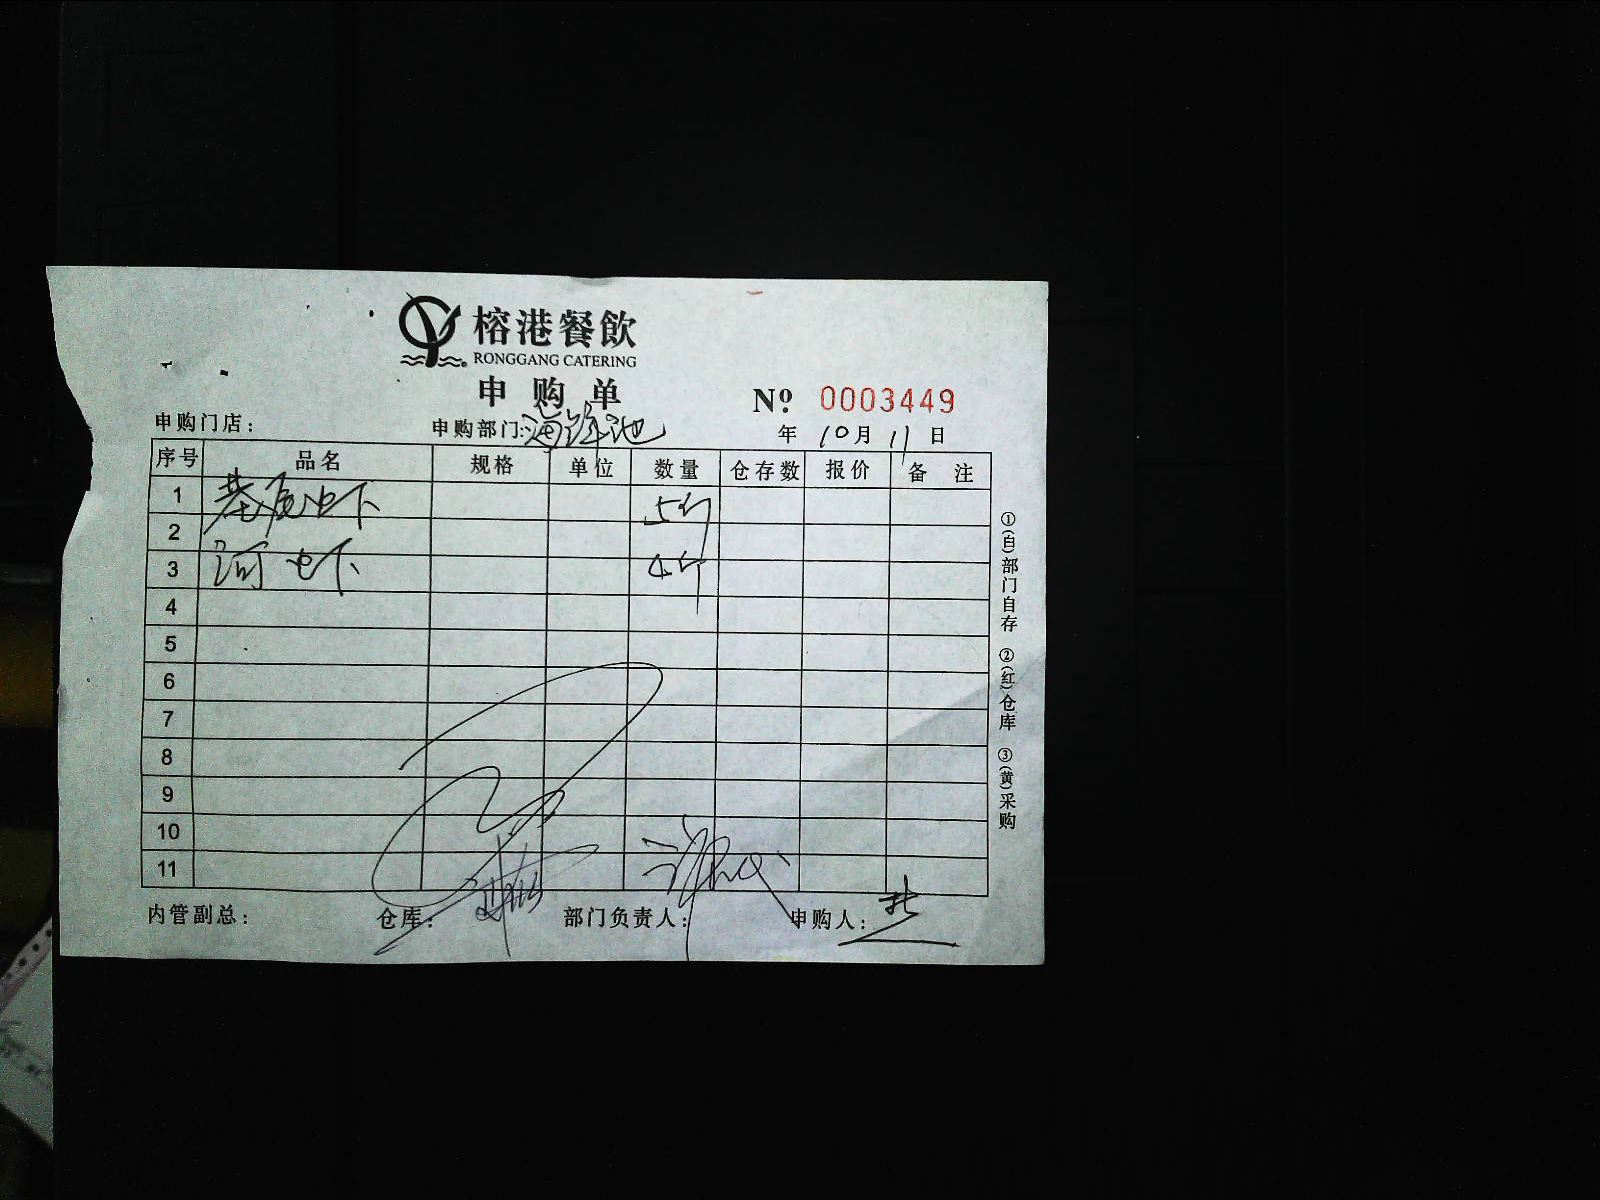 榕港餐飲
RONGGANG CATERING
申购单
Nº 0003449
申购门店: 申购部门:海鲜池 年10月11日
序号 品名 规格 单位 数量 仓存数 报价 备注
1 基尾虾 5斤
2
3 河虾 4斤
4
5
6
7
8
9
10
11
内管副总: 仓库: 部门负责人: 申购人:
①(白)部门自存 ②(红)仓库 ③(黄)采购